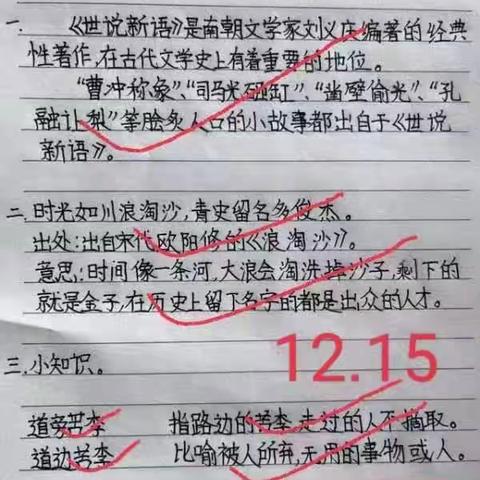 一. 《世说新语》是南朝文学家刘义庆编著的经典
性著作,在古代文学史上有着重要的地位。
“曹冲称象”、“司马光砸缸”、“凿壁偷光”、“孔
融让梨”等脍炙人口的小故事都出自于《世说
新语》。
二. 时光如川浪淘沙,青史留名多俊杰。
出处:出自宋代欧阳修的《浪淘沙》。
意思:时间像一条河,大浪会淘洗掉沙子,剩下的
就是金子,在历史上留下名字的都是出众的人才。
12.15
三. 小知识。
道旁苦李 指路边的苦李,走过的人不摘取。
道边苦李 比喻被人所弃,无用的事物或人。